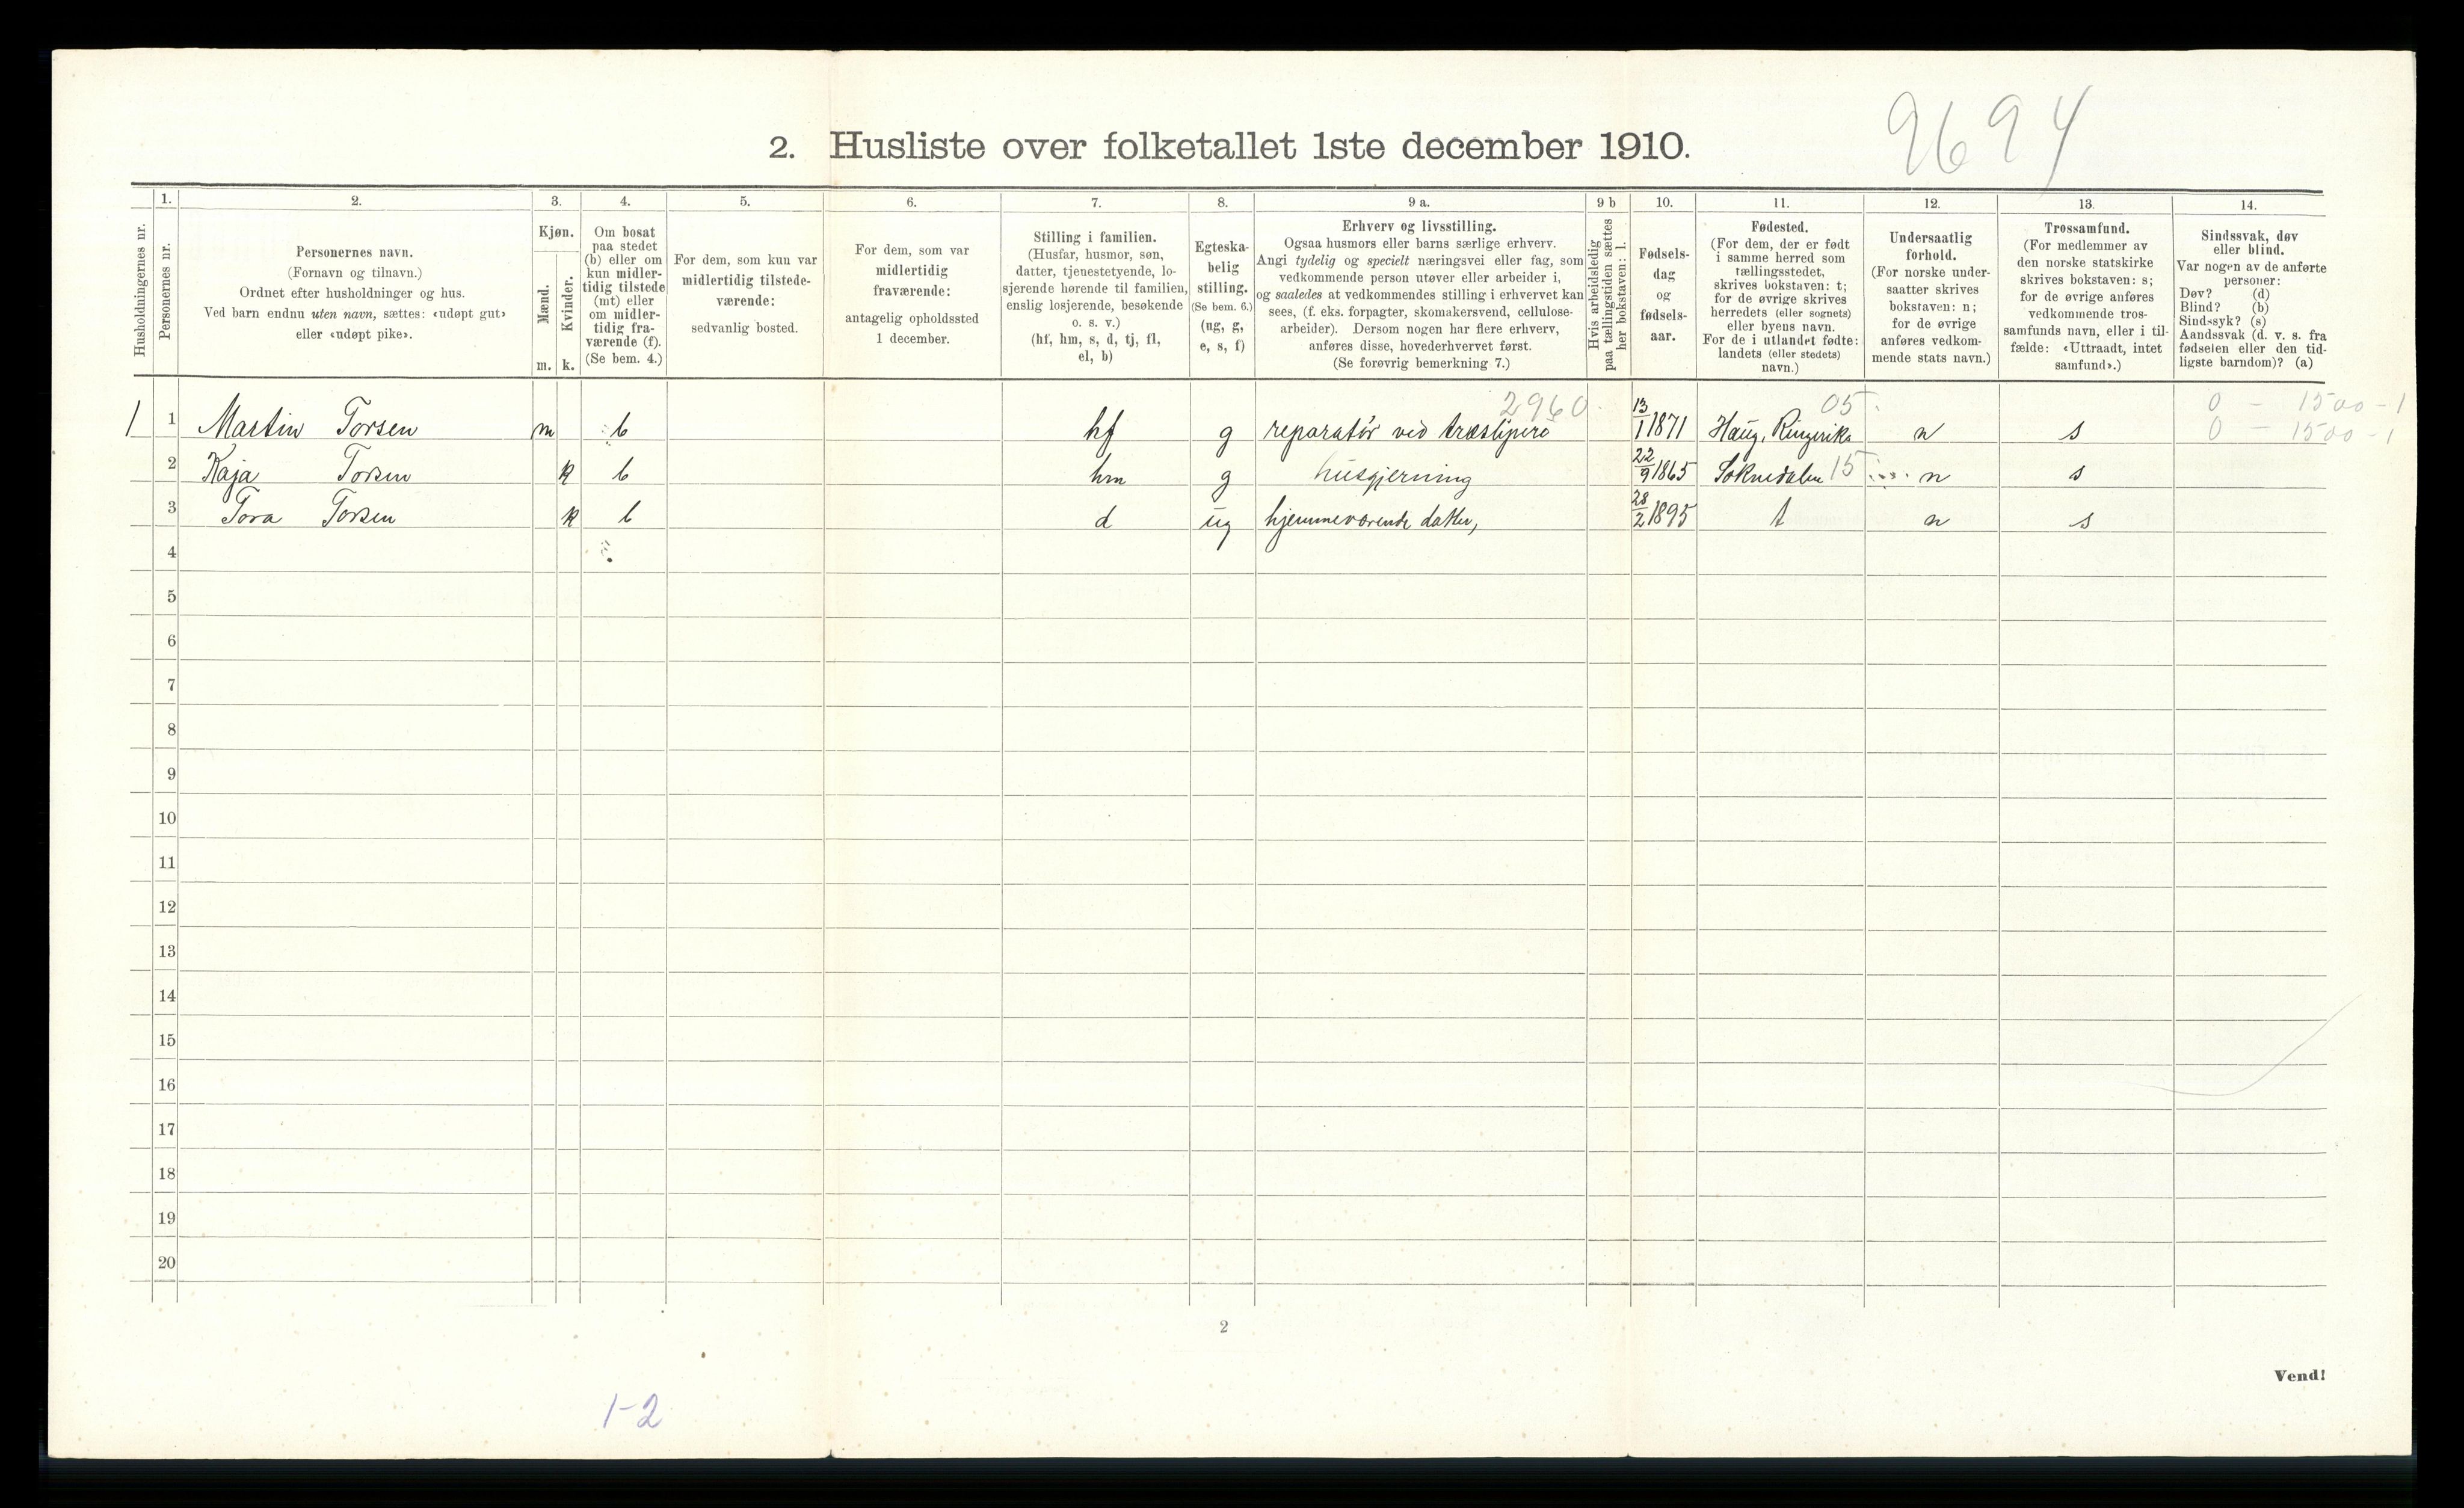 9694
2. Husliste over folketallet 1ste december 1910.
Husholdningernes nr.
1.
Personernes nr.
2.
Personernes navn.
(Fornavn og tilnavn.)
Ordnet efter husholdninger og hus.
Ved barn endnu uten navn, sættes: «udøpt gut»
eller «udøpt pike».
3.
Kjøn.
Mænd.
m.
Kvinder.
k.
4.
Om bosat
paa stedet
(b) eller om
kun midler-
tidig tilstede
(mt) eller
om midler-
tidig fra-
værende (f).
(Se bem. 4.)
5.
For dem, som kun var
midlertidig tilstede-
værende:
sedvanlig bosted.
6.
For dem, som var
midlertidig
fraværende:
antagelig opholdssted
1 december.
7.
Stilling i familien.
(Husfar, husmor, søn,
datter, tjenestetyende, lo-
sjerende hørende til familien,
enslig losjerende, besøkende
o. s. v.)
(hf, hm, s, d, tj, fl,
el, b)
8.
Egteska-
belig
stilling.
(Se bem. 6.)
(ug, g,
e, s, f)
9 a.
Erhverv og livsstilling.
Ogsaa husmors eller barns særlige erhverv.
Angi tydelig og specielt næringsvei eller fag, som
vedkommende person utøver eller arbeider i,
og saaledes at vedkommendes stilling i erhvervet kan
sees, (f. eks. forpagter, skomakersvend, cellulose-
arbeider). Dersom nogen har flere erhverv,
anføres disse, hovederhvervet først.
(Se forøvrig bemerkning 7.)
9 b
Hvis arbeidsledig
paa tællingstiden sættes
her bokstaven: l.
10.
Fødsels-
dag
og
fødsels-
aar.
11.
Fødested.
(For dem, der er født
i samme herred som
tællingsstedet,
skrives bokstaven: t;
for de øvrige skrives
herredets (eller sognets)
eller byens navn.
For de i utlandet fødte:
landets (eller stedets)
navn.)
12.
Undersaatlig
forhold.
(For norske under-
saatter skrives
bokstaven: n;
for de øvrige
anføres vedkom-
mende stats navn.)
13.
Trossamfund.
(For medlemmer av
den norske statskirke
skrives bokstaven: s;
for de øvrige anføres
vedkommende tros-
samfunds navn, eller i til-
fælde: «Uttraadt, intet
samfund».)
14.
Sindssvak, døv
eller blind.
Var nogen av de anførte
personer:
Døv? (d)
Blind? (b)
Sindssyk? (s)
Aandssvak (d. v. s. fra
fødselen eller den tid-
ligste barndom)? (a)
2960 05 0 - 1500 - 1
1 1 Martin Torsen m b hf g reparatør ved træsliperi 13/1 1871 Haug, Ringerike n s 0 - 1500 - 1
2 Kaja Torsen k b hm g husgjerning 22/9 1865 Soknedalen 15 n s
3 Tora Torsen k b d ug hjemmeværende datter, 28/2 1895 t n s
4
5
6
7
8
9
10
11
12
13
14
15
16
17
18
19
20
2
Vend!
1-2